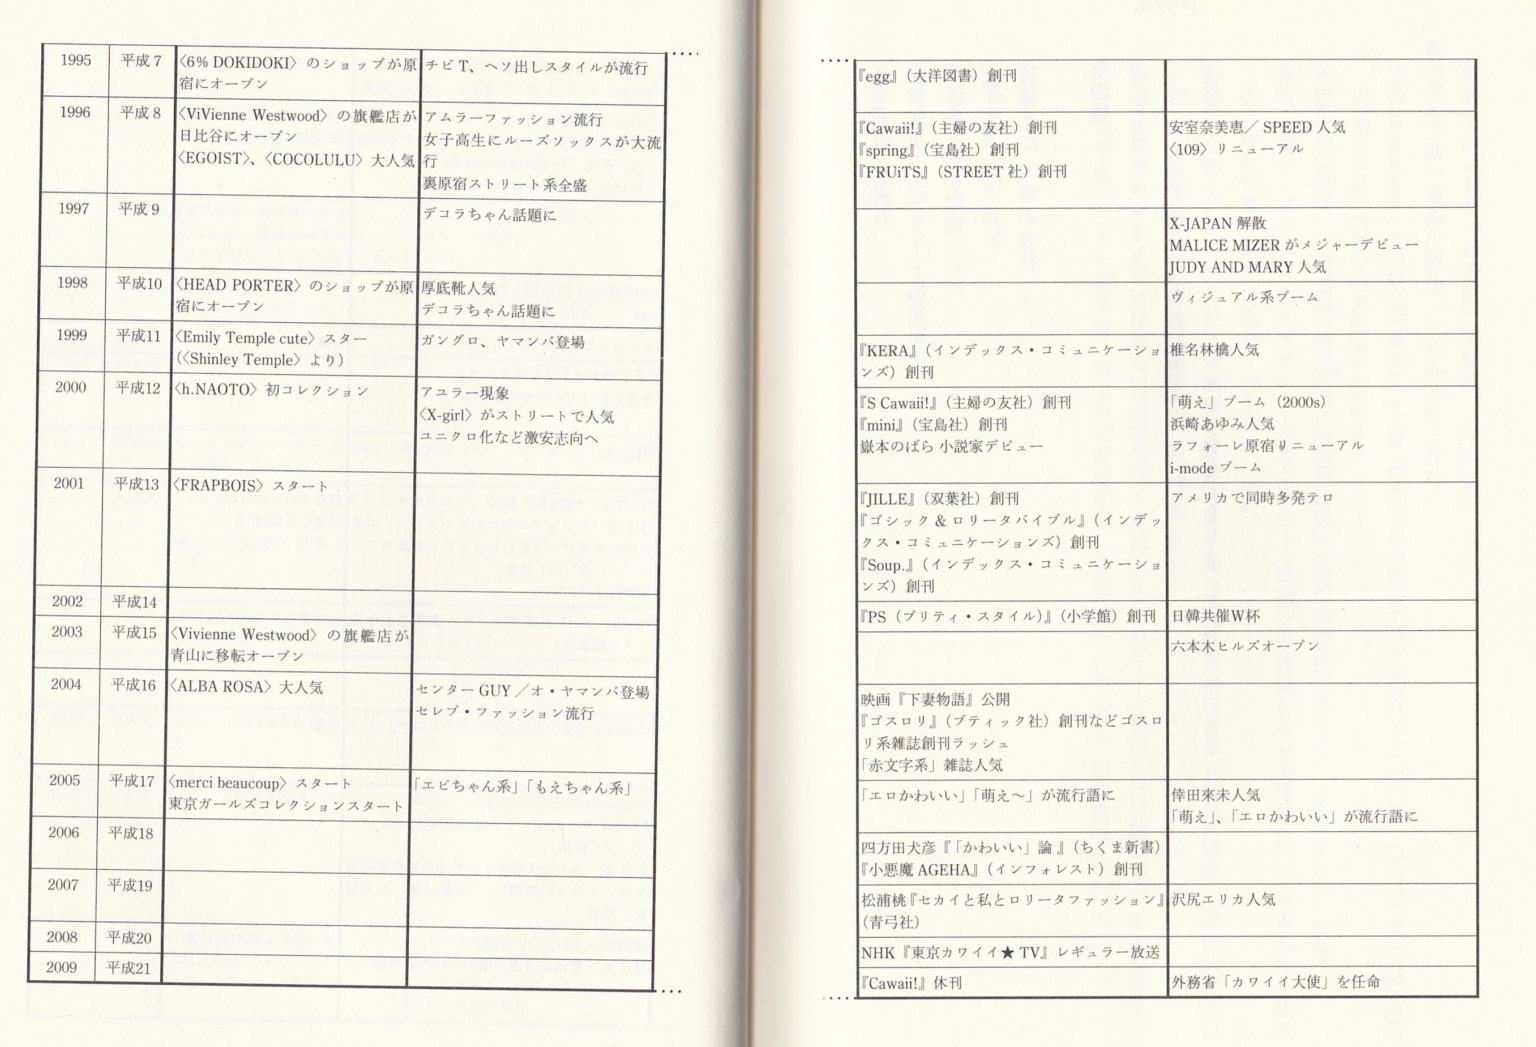 1995 平成7 〈6% DOKIDOKI〉のショップが原
宿にオープン
チビT、ヘソ出しスタイルが流行
1996 平成8 〈ViVienne Westwood〉の旗艦店が
日比谷にオープン
〈EGOIST〉、〈COCOLULU〉大人気
アムラーファッション流行
女子高生にルーズソックスが大流
行
裏原宿ストリート系全盛
1997 平成9 デコラちゃん話題に
1998 平成10 〈HEAD PORTER〉のショップが原
宿にオープン
厚底靴人気
デコラちゃん話題に
1999 平成11 〈Emily Temple cute〉スター
(〈Shinley Temple〉より)
ガングロ、ヤマンバ登場
2000 平成12 〈h.NAOTO〉初コレクション
アユラー現象
〈X-girl〉がストリートで人気
ユニクロ化など激安志向へ
2001 平成13 〈FRAPBOIS〉スタート
2002 平成14
2003 平成15 〈Vivienne Westwood〉の旗艦店が
青山に移転オープン
2004 平成16 〈ALBA ROSA〉大人気
センターGUY/オ・ヤマンバ登場
セレブ・ファッション流行
2005 平成17 〈merci beaucoup〉スタート
東京ガールズコレクションスタート
「エビちゃん系」「もえちゃん系」
2006 平成18
2007 平成19
2008 平成20
2009 平成21
『egg』(大洋図書)創刊
『Cawaii!』(主婦の友社)創刊
『spring』(宝島社)創刊
『FRUiTS』(STREET社)創刊
安室奈美恵/SPEED人気
〈109〉リニューアル
X-JAPAN解散
MALICE MIZERがメジャーデビュー
JUDY AND MARY人気
ヴィジュアル系ブーム
『KERA』(インデックス・コミュニケーショ
ンズ)創刊
椎名林檎人気
『S Cawaii!』(主婦の友社)創刊
『mini』(宝島社)創刊
嶽本のばら 小説家デビュー
「萌え」ブーム(2000s)
浜崎あゆみ人気
ラフォーレ原宿リニューアル
i-modeブーム
『JILLE』(双葉社)創刊
『ゴシック&ロリータバイブル』(インデッ
クス・コミュニケーションズ)創刊
『Soup.』(インデックス・コミュニケーショ
ンズ)創刊
アメリカで同時多発テロ
『PS(プリティ・スタイル)』(小学館)創刊
日韓共催W杯
六本木ヒルズオープン
映画『下妻物語』公開
『ゴスロリ』(ブティック社)創刊などゴスロ
リ系雑誌創刊ラッシュ
「赤文字系」雑誌人気
「エロかわいい」「萌え〜」が流行語に
倖田來未人気
「萌え」、「エロかわいい」が流行語に
四方田犬彦『「かわいい」論』(ちくま新書)
『小悪魔AGEHA』(インフォレスト)創刊
松浦桃『セカイと私とロリータファッション』
(青弓社)
沢尻エリカ人気
NHK『東京カワイイ★TV』レギュラー放送
『Cawaii!』休刊
外務省「カワイイ大使」を任命